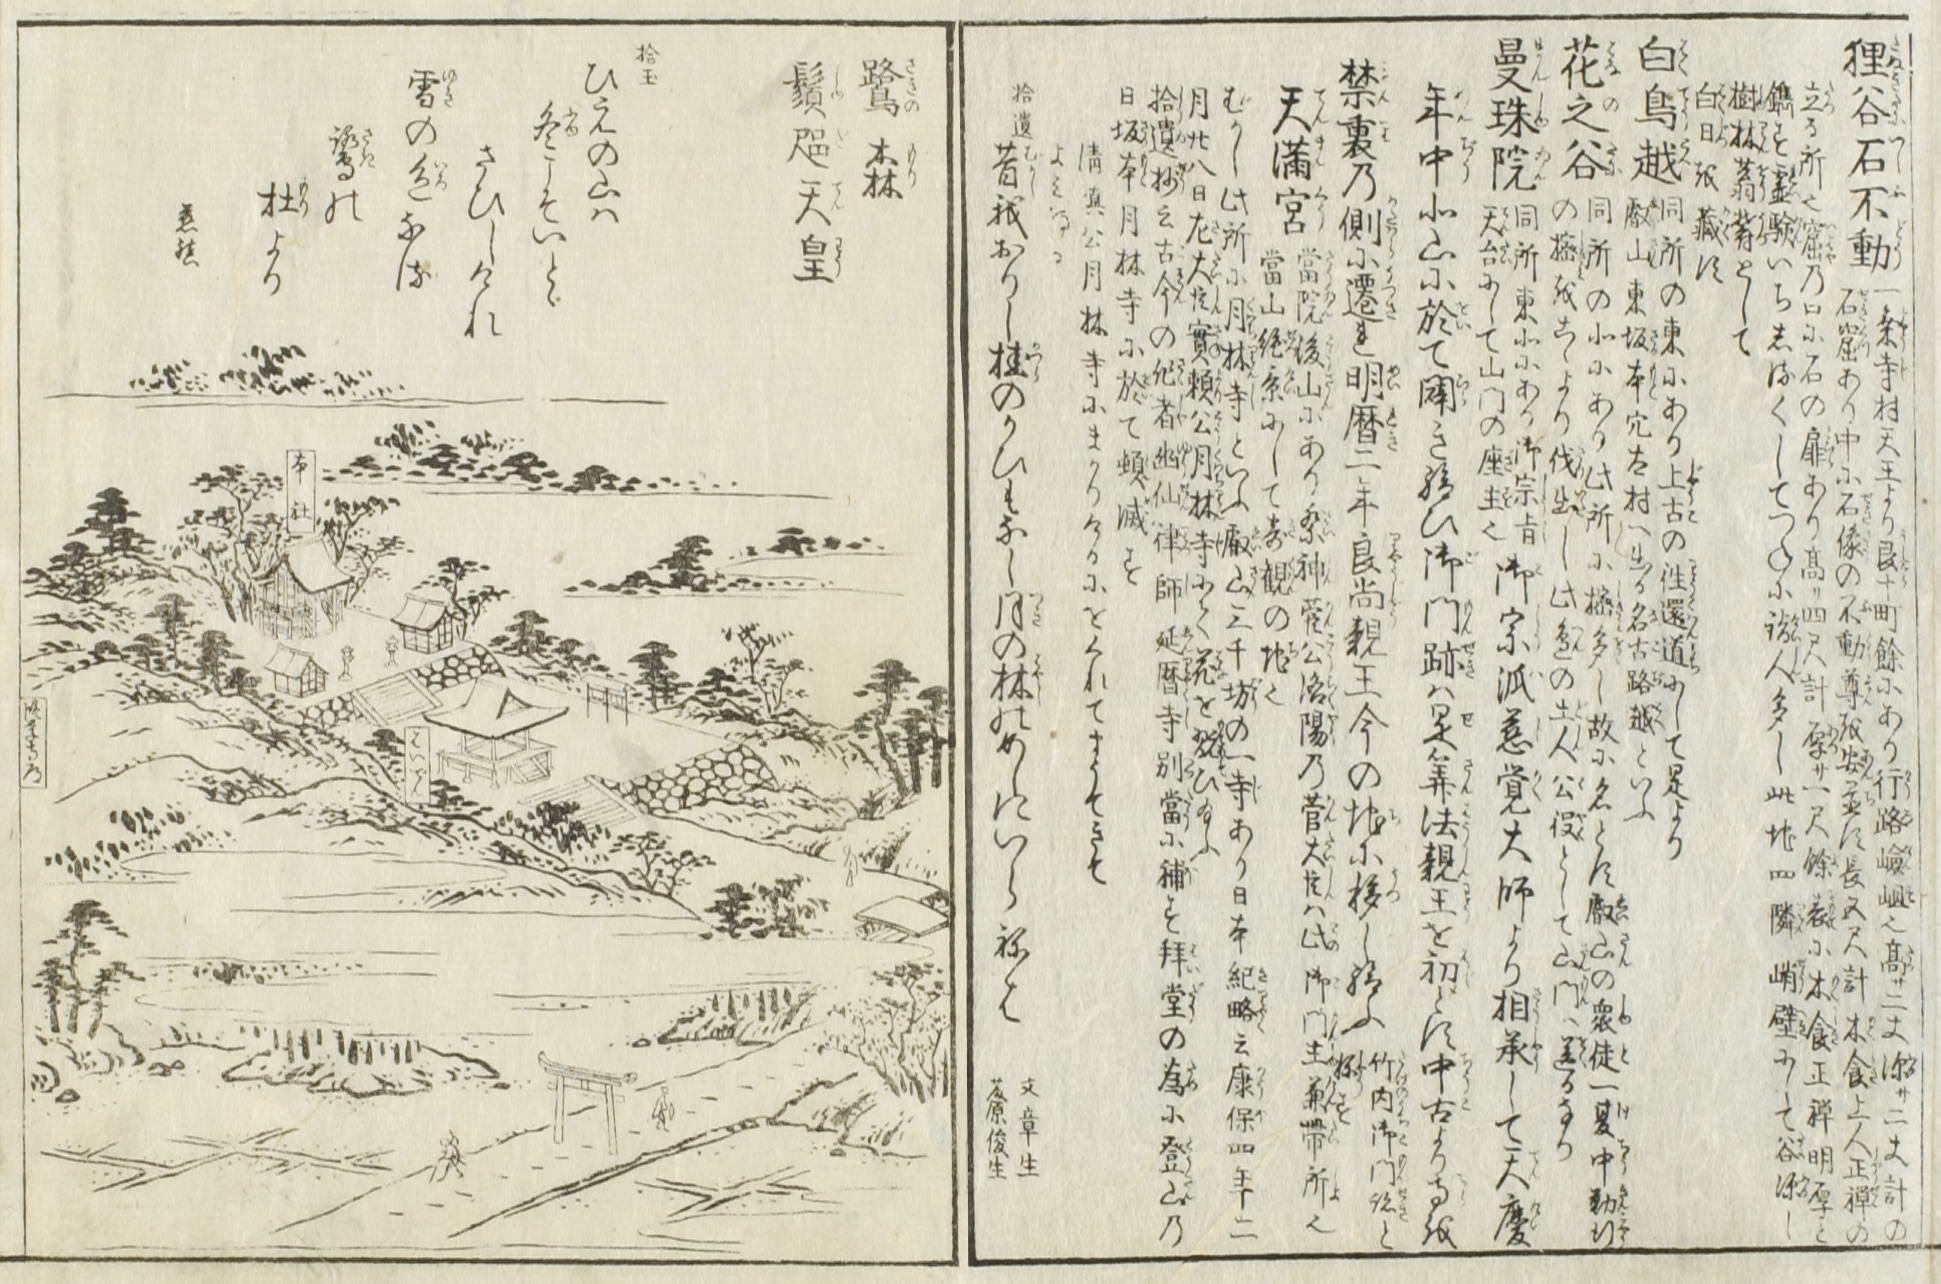 狸谷石不動
一条寺村天王より艮十町餘にあり行路嶮岨也高サ二丈深サ二丈計の
石窟あり中に石像の不動尊を安置す長五尺計木食上人正禅の
立る所也窟乃口に石の扉あり高サ四尺計厚サ一尺餘表に木食正禅明厚と
鐫す霊験いちしるくしてつねに詣人多し此地四隣峭壁にして谷深し
樹林蓊欝として
白日を蔵す
白鳥越
同所の東にあり上古の往還道にして是より
叡山東坂本穴太村へ出る名古路越といふ
花之谷
同所の北にあり此所に樒多し故に名とす叡山の衆徒一夏中勤行
の樒をこゝより伐出し此邑の土人公役として山門へ送るなり
曼珠院
同所東北にあり御宗旨
天台にして山門の座主也
御宗派慈覚大師より相承して天慶
年中北山に於て開き給ひ御門跡ハ是筭法親王を初とす中古より
禁裏乃側に遷し明暦二年良尚親王今の地に移し給ふ
竹内御門跡と
称す
天満宮
當院後山にあり祭神菅公洛陽乃菅大臣ハ此御門主兼帯所也
當山絶景にして奇観の地也
むかし此所に月林寺といふ叡山三千坊の一寺あり日本紀略云康保四年二
月廿八日左大臣實頼公月林寺にて花を翫ひ給ふ
拾遺抄云古今の作者幽仙律師延暦寺別當に補す拝堂の為に登山乃
日坂本月林寺に於て頓滅す
清眞公月林寺にまかりけるにをくれてまうてきて
よみける
拾遺
昔我おりし桂のかひもなし月の林のめしにいらねは
文章生
藤原後生
鷺森
鬚咫天皇
拾玉
ひえの山は
冬こそいとゝ
さひしけれ
雪の色なる
鷺の
杜より
慈鎮
本社
はいでん